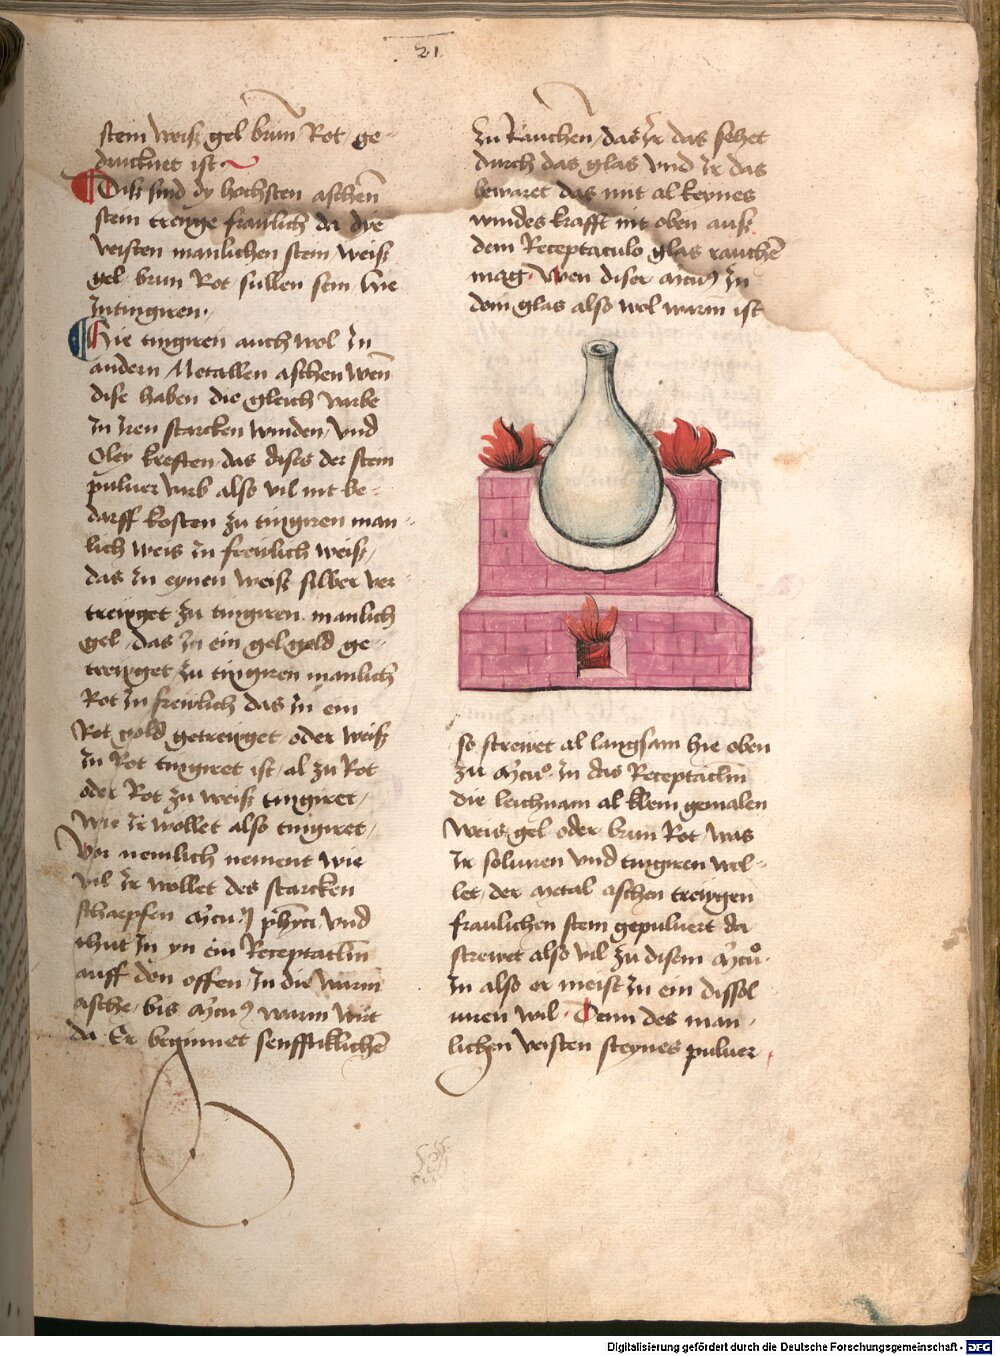 21
stein weiß gel brun Rot ge-
drucknet ist
Diß sind dy hochsten aschen
stein trewge fraulich da die
veisten manlichen stein weiß
gel brun Rot sullen sein hie
Intingiren
Hie tingiren auch wol In
andern Metallen aschen wen
dise haben die gleich varbe
In Iren starcken winden vnd
Oley kreften das dises der stein
puluer wirb also vil nit be-
darff kosten zu tingiren man-
lich weis In frewlich weiß
das In eynen weiß silber ver-
trewget zu tingiren manlich
gel das In ein gel gold ge-
trewget zu tingiren manlich
Rot In frewlich das In ein
Rot gold getrewget oder weiß
In Rot tingiret ist al zu Rot
oder Rot zu weiß tingiret
wie Ir wollet also tingiret
Von nemlich nement wie
vil Ir wollet des starcken
scharpfen vnd
thut In yn ein Receptaclin
auff den offen In die warm
asche bis warm wirt
da Er beginnet senfftiklichen
zu Rauchen das Ir das sehet
durch das glas vnd Ir das
bewaret das mit al keynes
windes krafft nit oben auß
dem Receptaculo glas rauchen
mag wen diser In
dem glas also wol warm ist
so strewet al langsam hie oben
zu In das Receptaclin
die leichnam al klein gemalen
weis gel oder brun Rot was
Ir soluiren vnd tingiren wol-
let der metal aschen trewgen
fraulichen stein gepuluert da
strewet also vil zu disem
In also er meist In ein dissol
uiren wil Denn des man-
lichen veisten steynes puluer
Digitalisierung gefördert durch die Deutsche Forschungsgemeinschaft - DFG